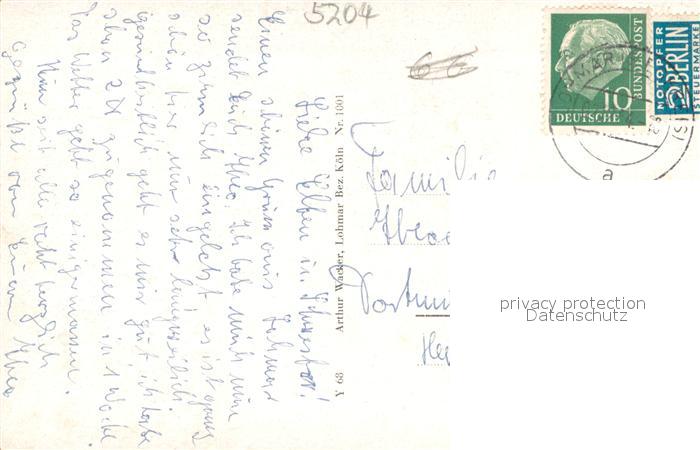 5204
Liebe Eltern u. Schwester!
Einen schönen Gruß aus Lohmar
sendet Euch Theo. Ich habe mich nun
so ziemlich eingelebt es ist ganz
schön hier nur sehr langweilig.
gesundheitlich geht es mir gut, ich habe
schon 2 zugenommen in 1 Woche
Das Wetter geht so einigermassen.
Nun seit alle recht herzlich
gegrüßt von Eurem Theo
Y 68 Arthur Wacker, Lohmar Bez. Köln Nr. 1001
Familie
Theo
Dortmun
10
DEUTSCHE
BUNDESPOST
NOTOPFER
2 BERLIN
STEUERMARKE
a
privacy protection
Datenschutz